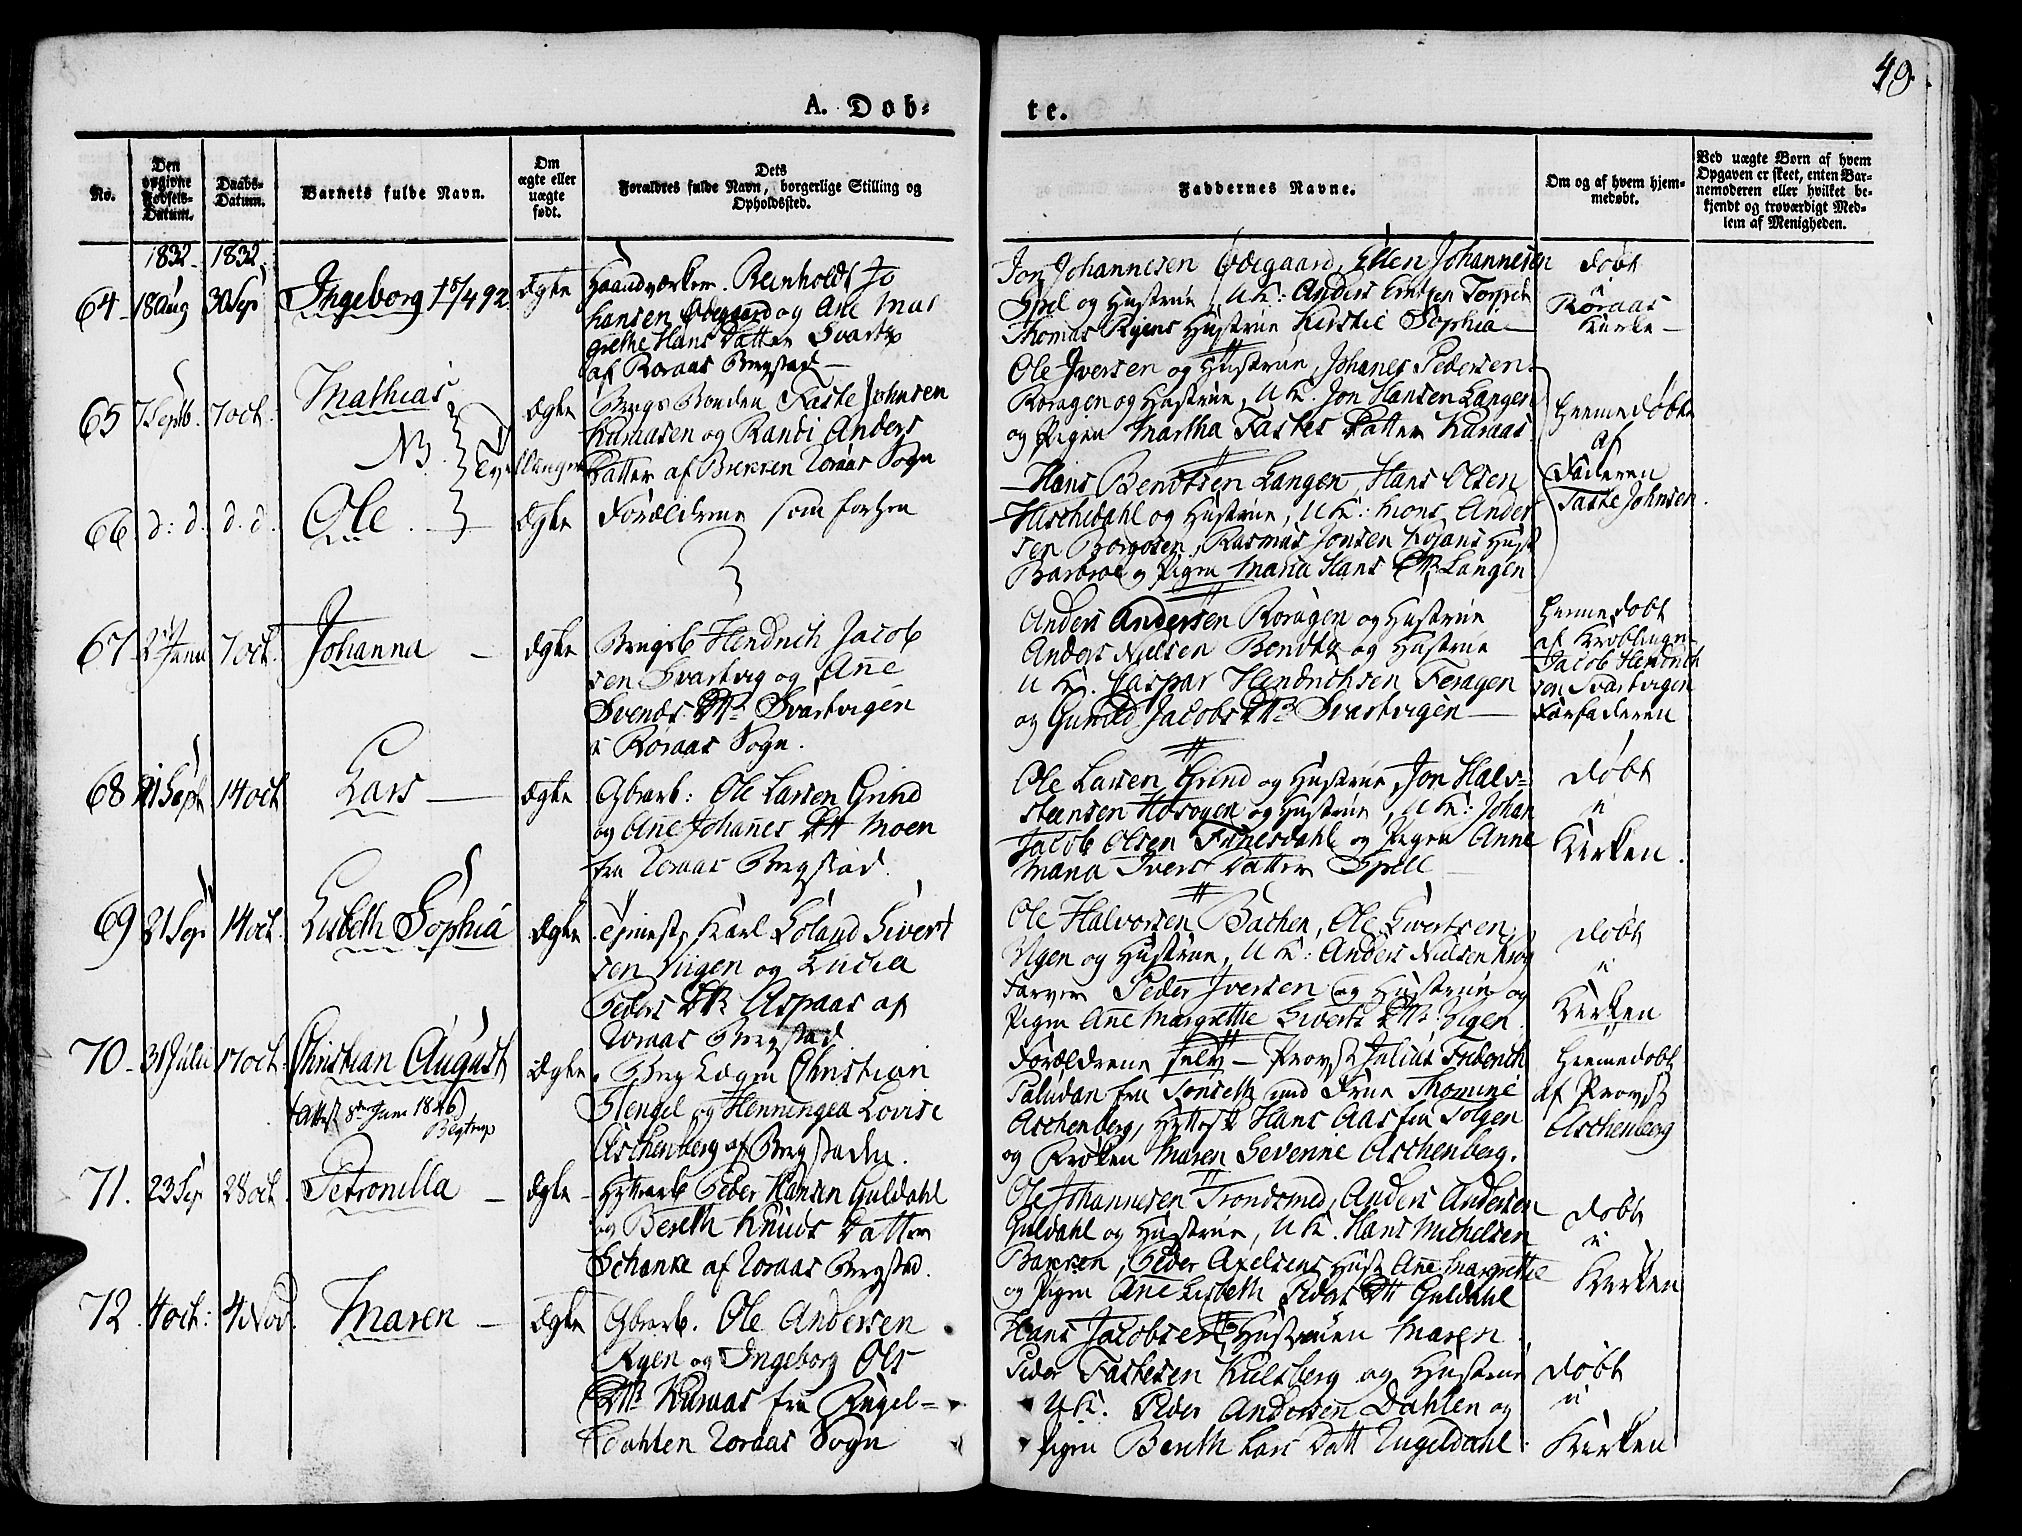 49.
A. Døb-
te.
No.
Den opgivne Fødsels-Datum.
Daabs-Datum.
Barnets fulde Navn.
Om ægte eller uægte født.
Dets
Forældres fulde Navn, borgerlige Stilling og
Opholdssted.
Faddernes Navne.
Om og af hvem hjem-
medøbt.
Ved uægte Børn af hvem
Opgaven er skeet, enten Bar-
nemoderen eller hvilket be-
kjendt og troværdigt Med-
lem af Menigheden.
1832. 1832.
64 18 Aug 30 Sep Ingeborg † 5/4 92 Ægte
Haandværker Reinholdt Jo
hansen Ødegaard og Ane Mar
grethe Hans Datter Svartz
af Røraas Bergstad
Jon Johannesen Ødegaard, Ellen Johannesen
Spel og Hustrue, U K: Anders
Thomas Ryens Hustrue Kirstie Sophia
døbt
i
Røraas
Kirke
65 7 Septb. 7 oct. Mathias Ægte
NB. Tvillinger
Bergs Bonden Faste Johnsen
Kuraasen og Randi Anders
Datter af Brekken Roraas Sogn
Ole Iversen og Hustrue, Johanes Pedersen
Roragen og Hustrue, U K. Jon Hansen Langen
og Pigen Martha Fastes Datter Kuraas
Hiemedøbte
af
Faderen
Faste Johnsen.
66 d: d. d. d. Ole Ægte
Forældrene som forhen
Hans Bendtsen Langen, Hans Olsen
og Hustrue, U K: Mons Ander
sen Borgosen, Rasmus Jonsen Kojans Hust
Barbroe og Pigen Maria Hans Dtr Langen
67 2 Juni 7 oct. Johanna Ægte
Bergsb Hendrich Jacob
sen Svartvig og Ane
Svends Dtr Svartvigen
i Røraas Sogn.
Anders Andersen Roragen og Hustrue
Anders Nielsen Bendtz og Hustrue
U K. Caspar Hendrichsen Feragen
og Gunild Jacobs Dtr Svartvigen
Hiemedøbt
af
Jacob Hendrich
sen Svartvigen
Farfaderen
68 21 Sept 14 oct Lars Ægte
Gbrarb: Ole Larsen Grind
og Ane Johanes Dtr Moen
fra Roraas Bergstad.
Ole Larsen Grind og Hustrue, Jon Halv-
steensen og Hustrue, U K: Johan
Jacob Olsen Funesdahl og Pigen Anne
Maria Ivers Datter Spell
døbt
i
Kirken.
69 21 Sep 14 oct. Lisbeth Sophia Ægte
Tjenest. Karl Eoland Sivert
sen Viigen og Lucia
Peders Dtr Aspaas af
Roraas Bergstad.
Ole Halvorsen Bachen, Ole Sivertsen
Vigen og Hustrue, U K: Anders Nielsen Krog
Farver Peder Iversen og Hustrue og
Pigen Ane Margrethe Siverts Dtr Vigen
døbt
i
Kirken
70 31 Julii 17 oct. Christian August Ægte
(Attest 8de Juni 1846)
Bergtrup
Berg Lægen Christian
Stengel og Henningea Lovise
Aschenberg af Bergstaden.
Forældrene selv - Provst Julius Friderich
Paludan fra Tonseth med Frue Thomine
Aschenberg, Hans Aas fra Tolgen
og Frøken Maren Severine Aschenberg.
Hiemedøbt
af Provst
Aschenberg
71. 23 Sep 28 oct. Petronilla Ægte
Hyttearb Peder Hansen Guldahl
og Bereth Knuds Datter
Schanke af Roraas Bergstad.
Ole Johannesen Trondsmed, Anders Andersen
Guldahl og Hustrue, U K. Hans Michelsen
Peder Axelsens Hust Ane Margrethe
og Pigen Ane Lisbeth Peders Dtt Guldahl
døbt
i
Kirken
72 4 oct: 4 Nov. Maren Ægte
Gbrarb. Ole Andersen
Ryen og Ingeborg Ols
Dtr Kuraas fra Rugel-
dahlen Roraas Sogn
Hans Jacobsen, Hustruen Maren
Peder Fastesen Kulsberg og Hustrue
U K. Peder Andersen Dahlen og
Pigen Bereth Lars Datt Rugeldahl
døbt
i
Kirken